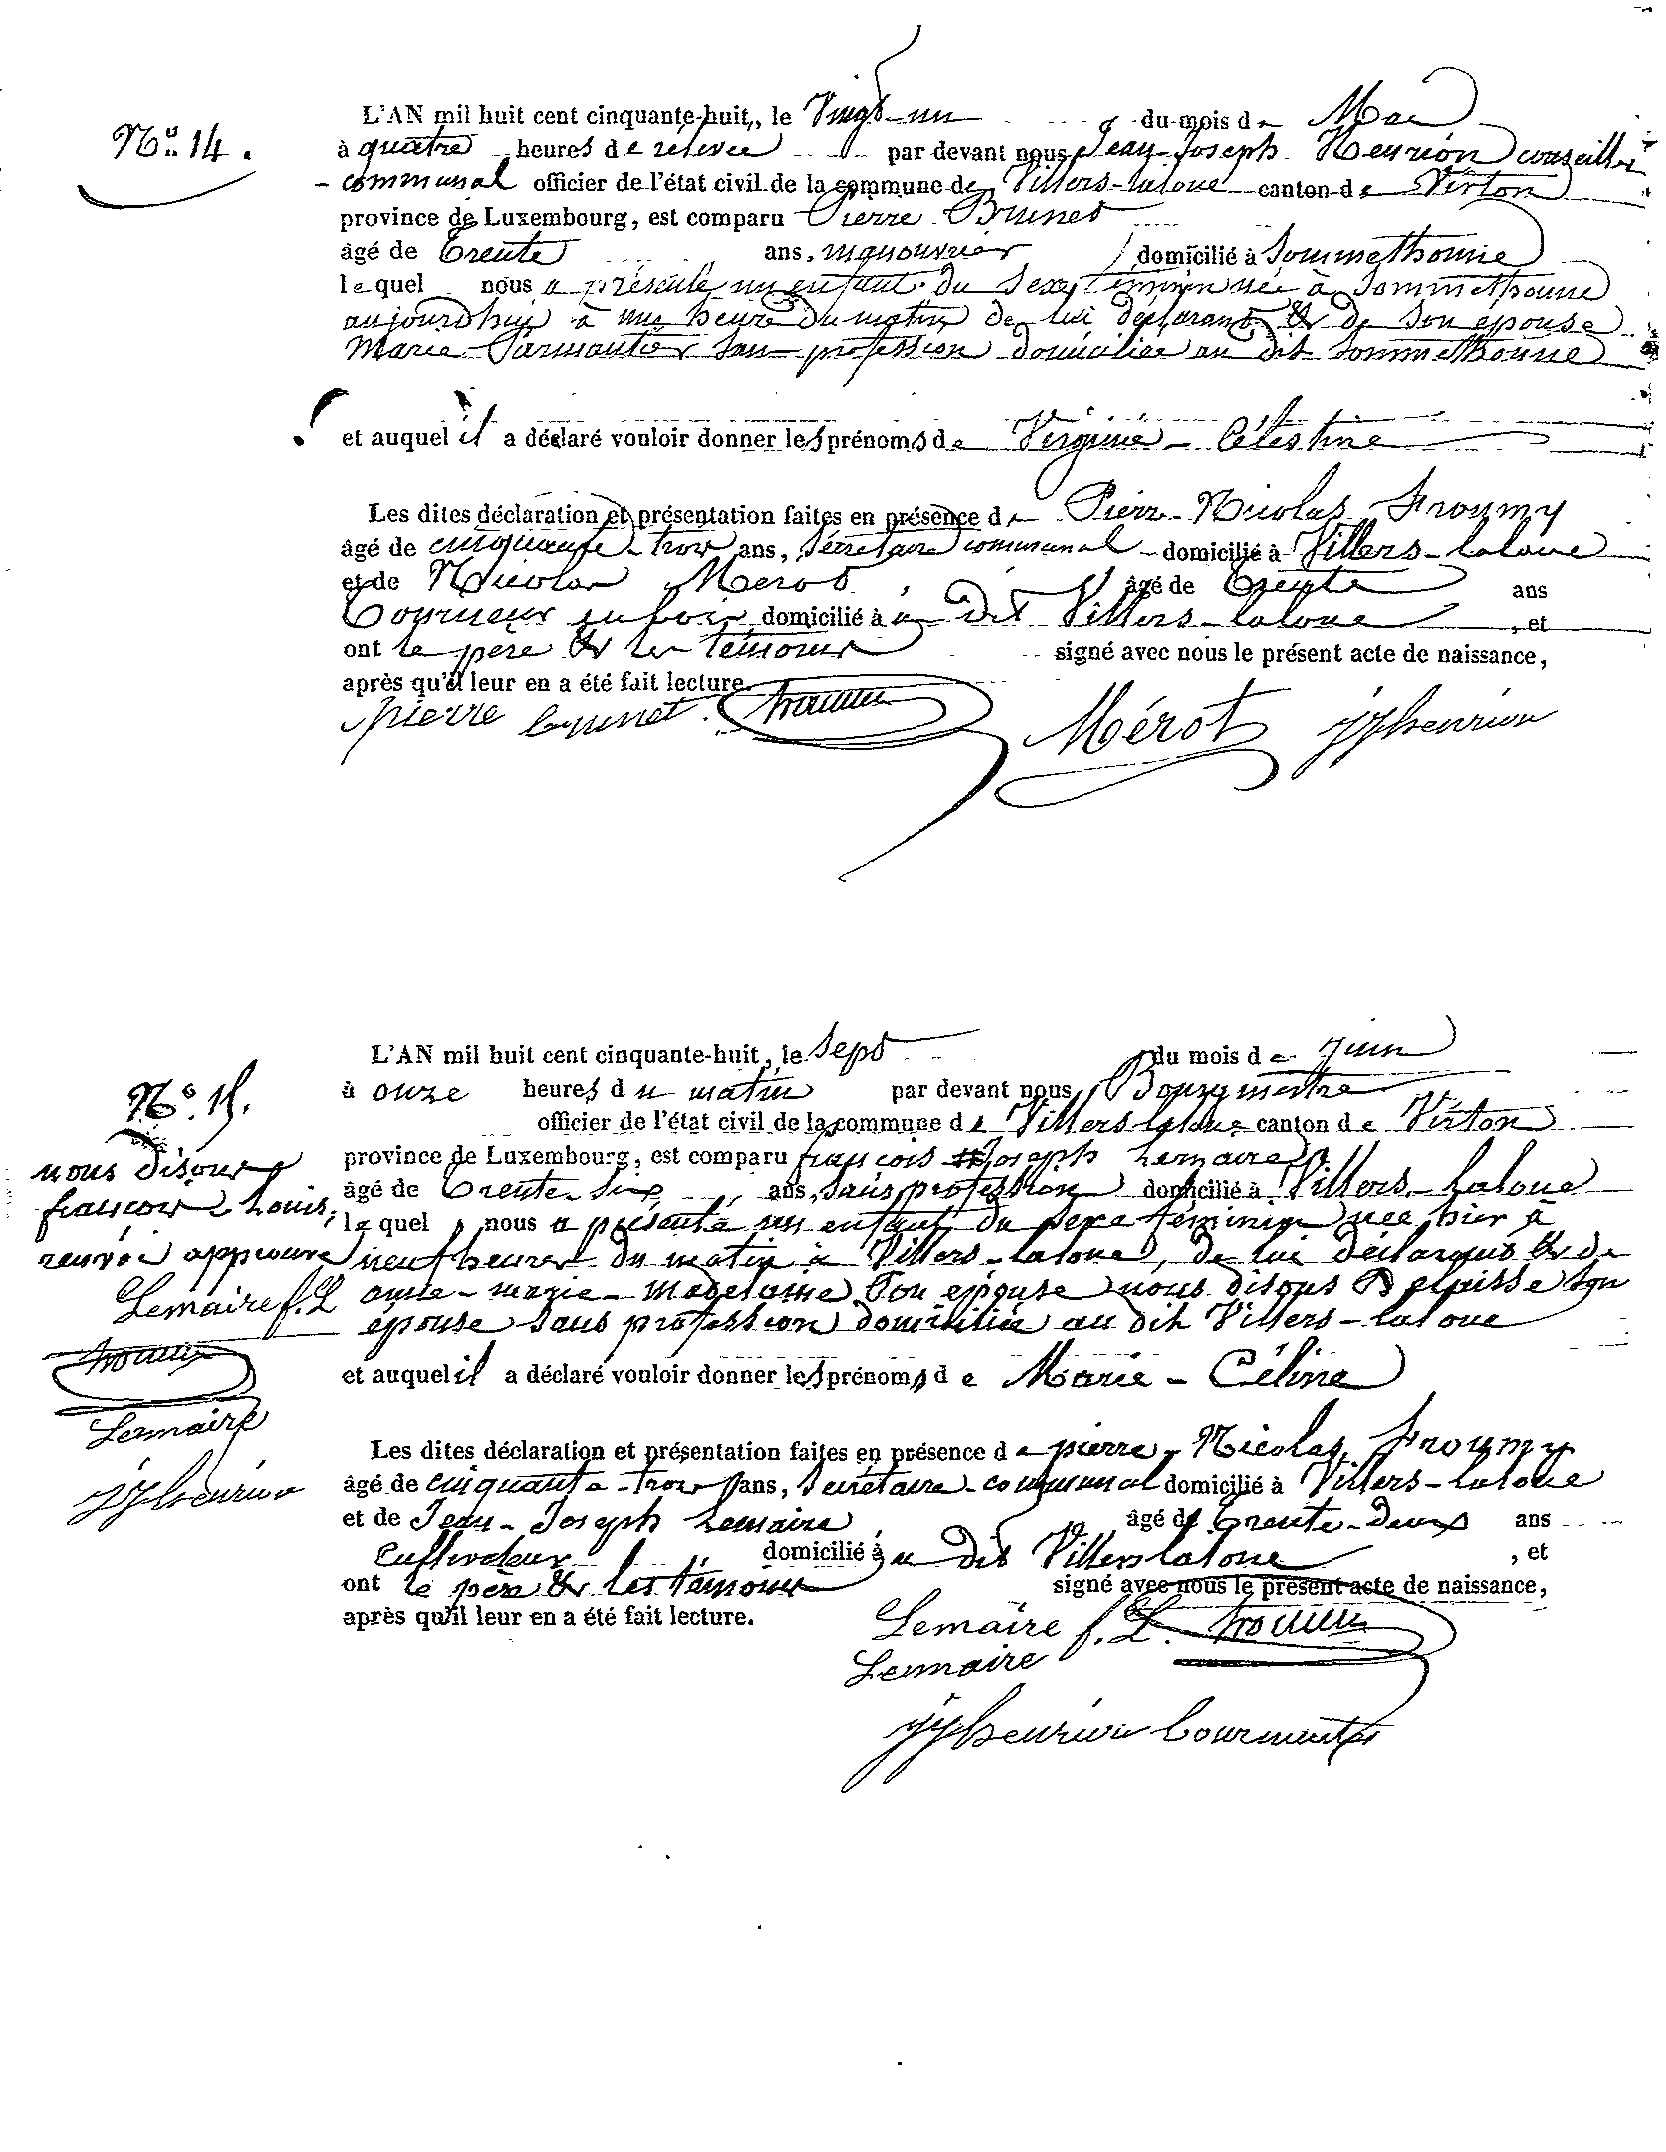 N.º 14.
L'AN mil huit cent cinquante-huit, le Vingt-un du mois de Mai
à quatre heures de relevée par devant nous Jean-Joseph Henrion conseiller
communal officier de l'état civil de la commune de Villers-laloue canton de Virton
province de Luxembourg, est comparu Pierre Brunet
âgé de trente ans, manouvrier domicilié à Sommethonne
lequel nous a présenté un enfant du sexe féminin née à Sommethonne
aujourdhui à une heure du matin de lui déclarant & de son épouse
Marie sans profession domiciliée au dit Sommethonne
et auquel il a déclaré vouloir donner les prénoms de Virginie-Célestine
Les dites déclaration et présentation faites en présence de Pierre-Nicolas Froumy
âgé de cinquante-trois ans, secrétaire communal domicilié à Villers-laloue
et de Nicolas Merot âgé de trente ans
tourneur en bois domicilié à au dit Villers-laloue, et
ont le père & les témoins signé avec nous le présent acte de naissance,
après qu'il leur en a été fait lecture.
pierre brunet. froumy Mérot jjhenrion
N.º 15.
nous disons
françois Louis,
renvoi approuvé
Lemaire f. L
froumy
Lemaire
jjhenrion
L'AN mil huit cent cinquante-huit, le sept du mois de Juin
à onze heures du matin par devant nous Bourgmestre
officier de l'état civil de la commune de Villers laloue canton de Virton
province de Luxembourg, est comparu françois Joseph Lemaire
âgé de trente-six ans, sans profession domicilié à Villers-laloue
lequel nous a présenté un enfant du sexe féminin née hier à
neuf heures du matin à Villers-laloue, de lui déclarant & de
anne-marie-madelaine son épouse nous disons son
épouse sans profession domiciliée au dit Villers-laloue
et auquel il a déclaré vouloir donner les prénoms de Marie-Céline
Les dites déclaration et présentation faites en présence de pierre-Nicolas Froumy
âgé de cinquante-trois ans, secrétaire-communal domicilié à Villers-laloue
et de Jean-Joseph Lemaire âgé de trente-deux ans
cultivateur domicilié à au dit Villers laloue, et
ont le père & les témoins signé avec nous le présent acte de naissance,
après qu'il leur en a été fait lecture.
Lemaire f. L. froumy
Lemaire
jjhenrion